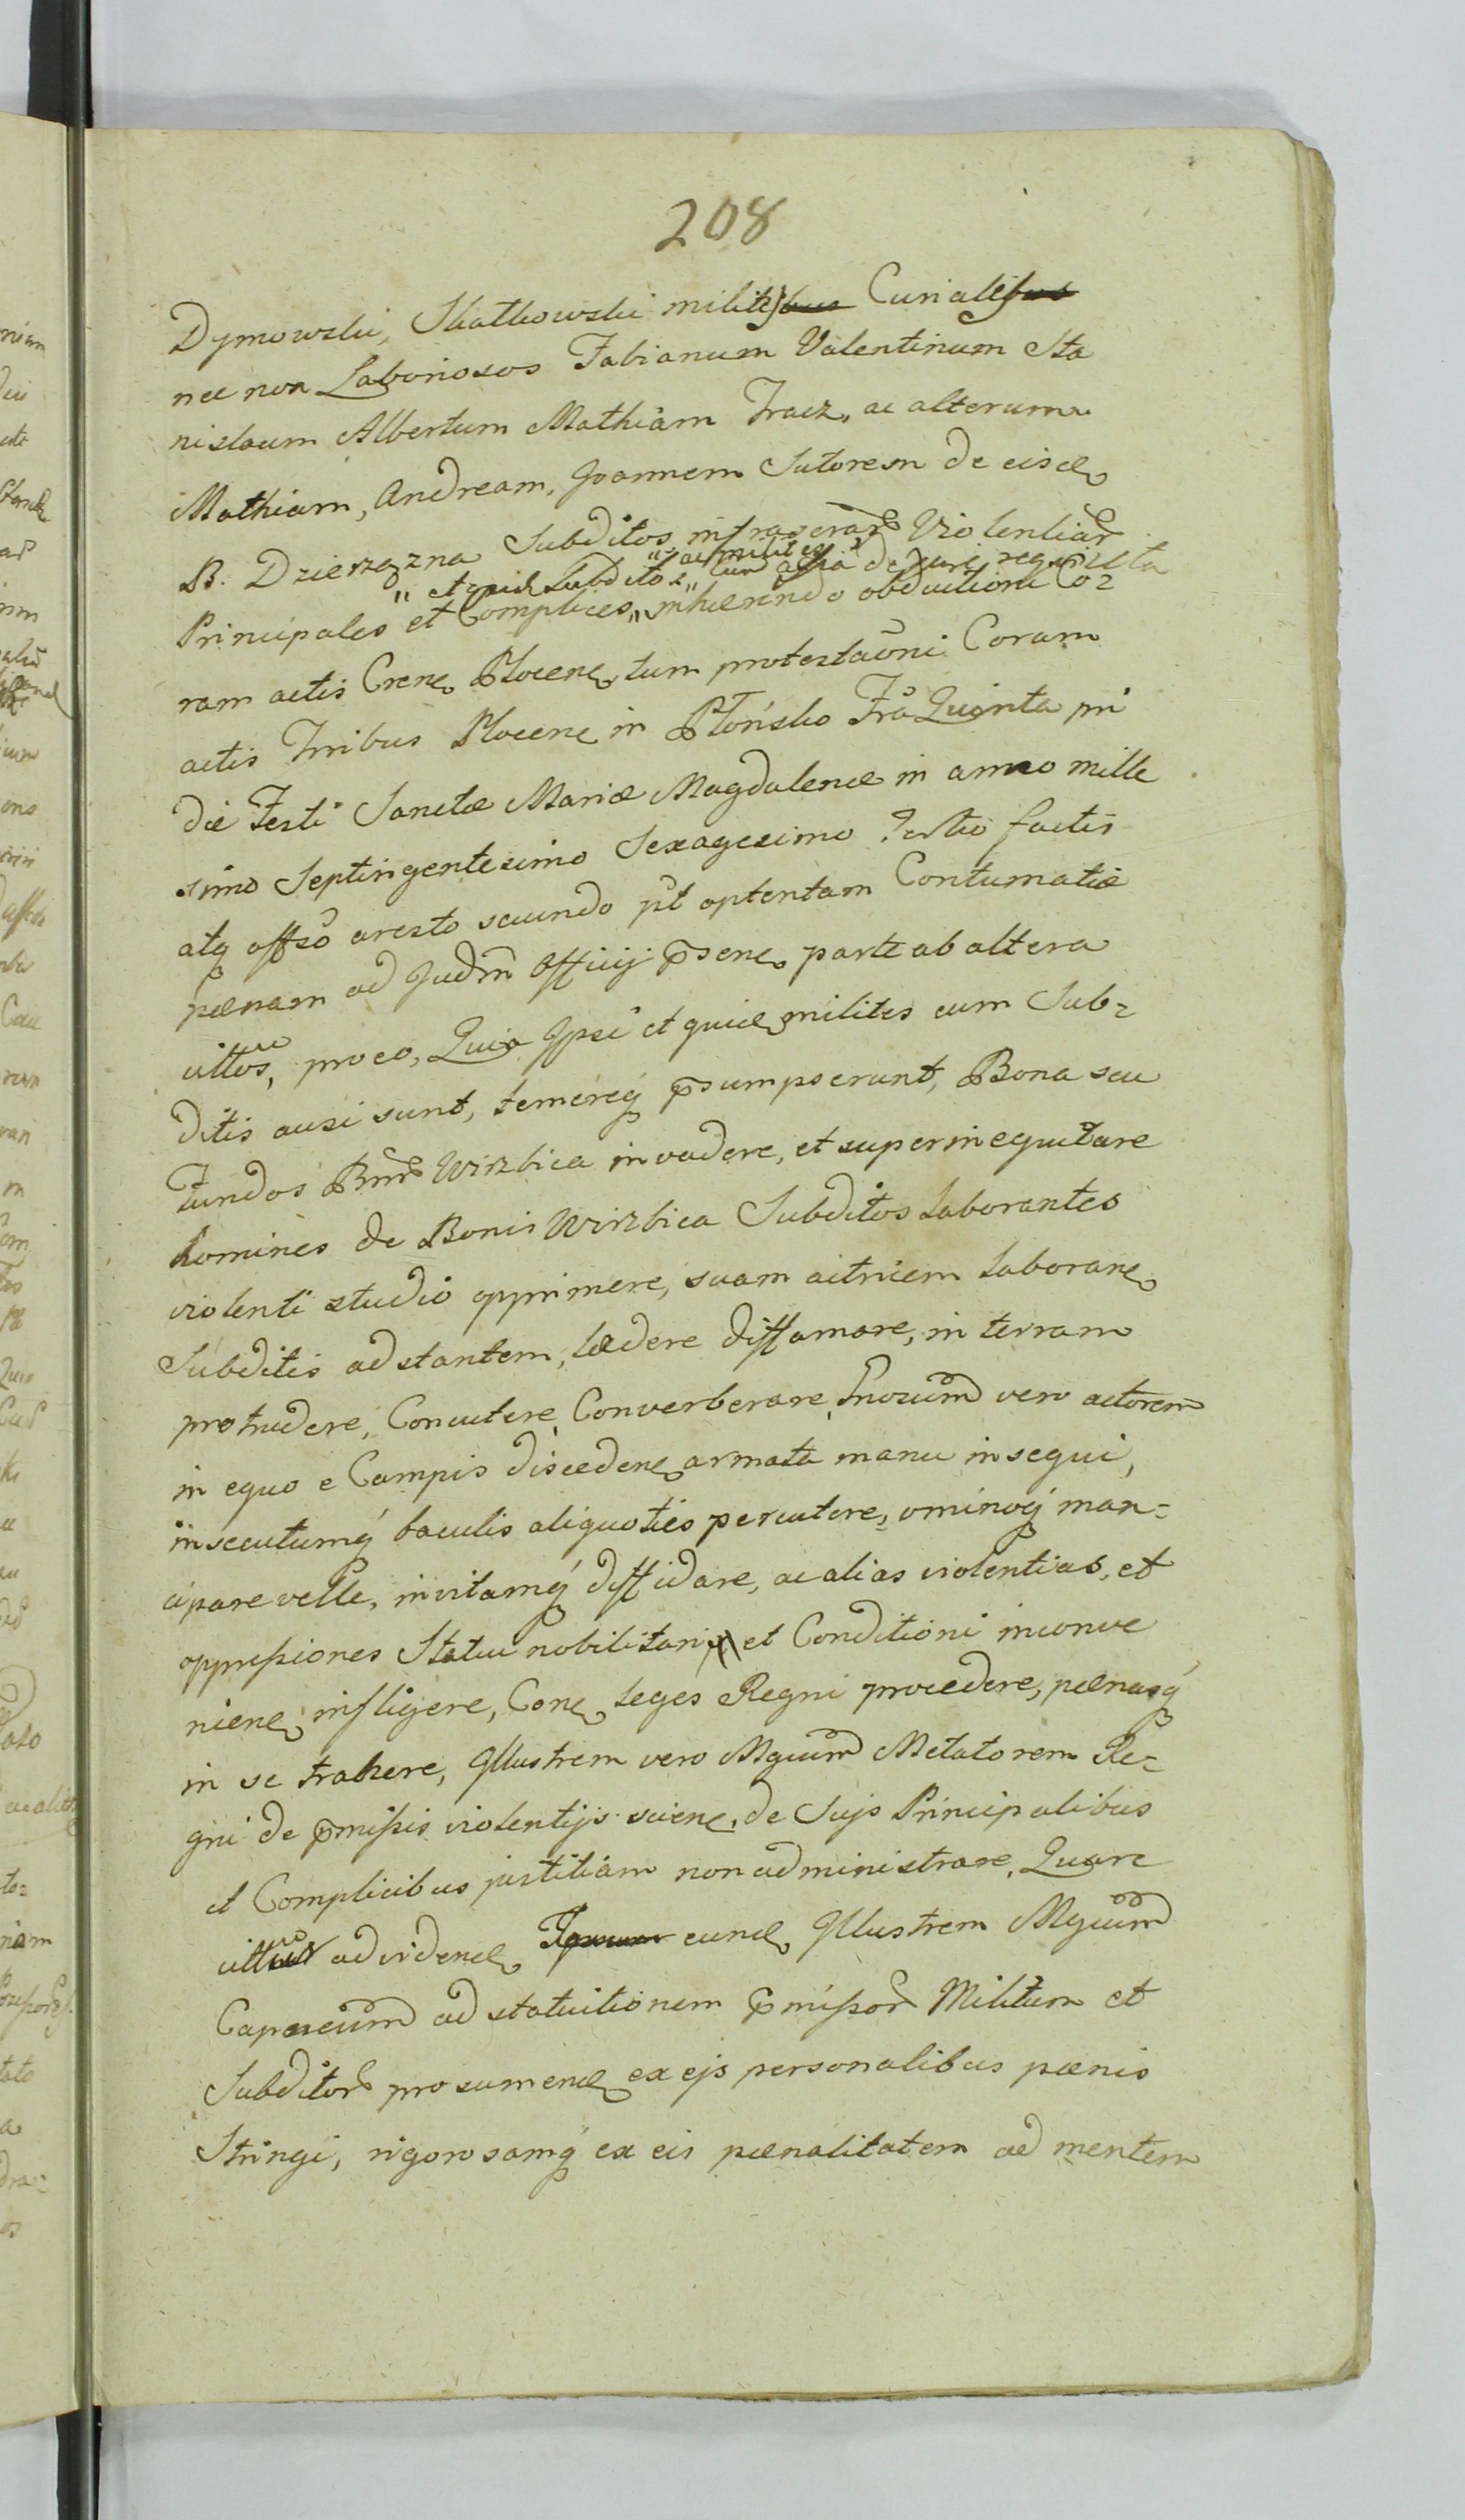 208
Dymowski, Skatkowski milites Curiales
nec non Laboriosos Fabianum Valentinum Sta
nislaum Albertum Mathiam Tracz, ac alterum
Mathiam, Andream, Joannem Sutorem de eisd
B. Dzierzązna Subditos infrascrar Violentiar
ac milites
" et Subditos " cum de jure requisita
Principales et Complices, " inhærendo obductioni Co=
ram actis Crens Plocens, tum protestaōni Coram
actis Trribus Plocens in Płońsko Fra Quinta pri
die Festi Sanctæ Mariæ Magdalenæ in anno mille
simo Septingentesimo Sexagesimo Tertio factis
atq offso aresto secundo pt optentam Contumatiæ
pænam ad Judm Officij psens parte ab altera
cittos, pro eo, Quia Ipsi et quid milites cum Sub=
ditis ausi sunt, temereq psumpserunt, Bona seu
Fundos Bnr Wirzbica invadere, et superinequitare
homines de Bonis Wirzbica Subditos laborantes
violenti studio opprimere, suam actricem laborans
Subditis adstantem, lædere diffamare, in terram
protrudere, Concutere, Converberare, Gnosum vero actorem
in equo e Campis discedens armata manu insequi,
insecutumq baculis aliquoties percutere, ominoq man=
cipare velle, invitamq diffidare, ac alias violentias, et
oppressiones Statui nobilitari et Conditioni inconve
niens infligere, Cons leges Regni procedere, pænasq
in se trahere, Illustrem vero Mgcum Metatorem Re=
gni de pmissis violentijs sciens, de Suis Principalibus
et Complicibus justitiam non administrare, Quare
citt ad videnδ eund Illustrem Mgcum
Capneum ad statuitionem pmissor Militum et
Subditor pro sumend ex ejs personalibus pænis
Stringi, rigorosamq ex eis pænalitatem ad mentem